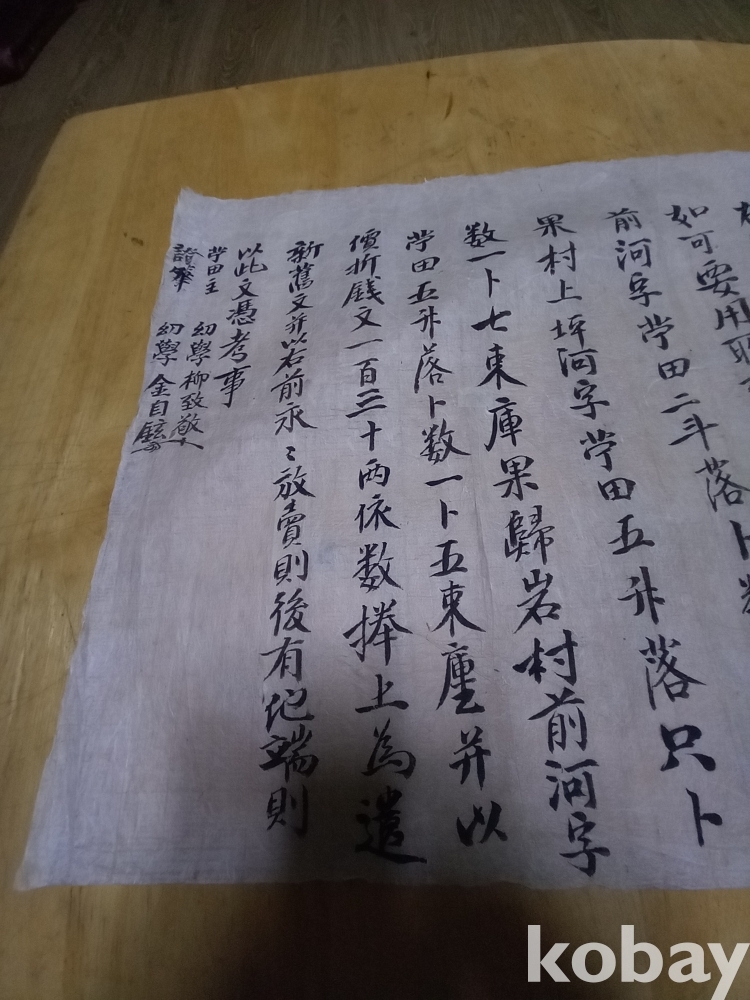 如可要用
前河字䓁田二斗落卜
果村上坪河字䓁田五升落只卜
数一卜七束庫果歸岩村前河字
䓁田五升落卜数一卜五束㕓并以
價折錢文一百三十両依数捧上為遣
新舊文并以右前永〻放賣則後有他端則
以此文憑考事
䓁田主 幼學柳致敬
證筆 幼學金自鉉
kobay